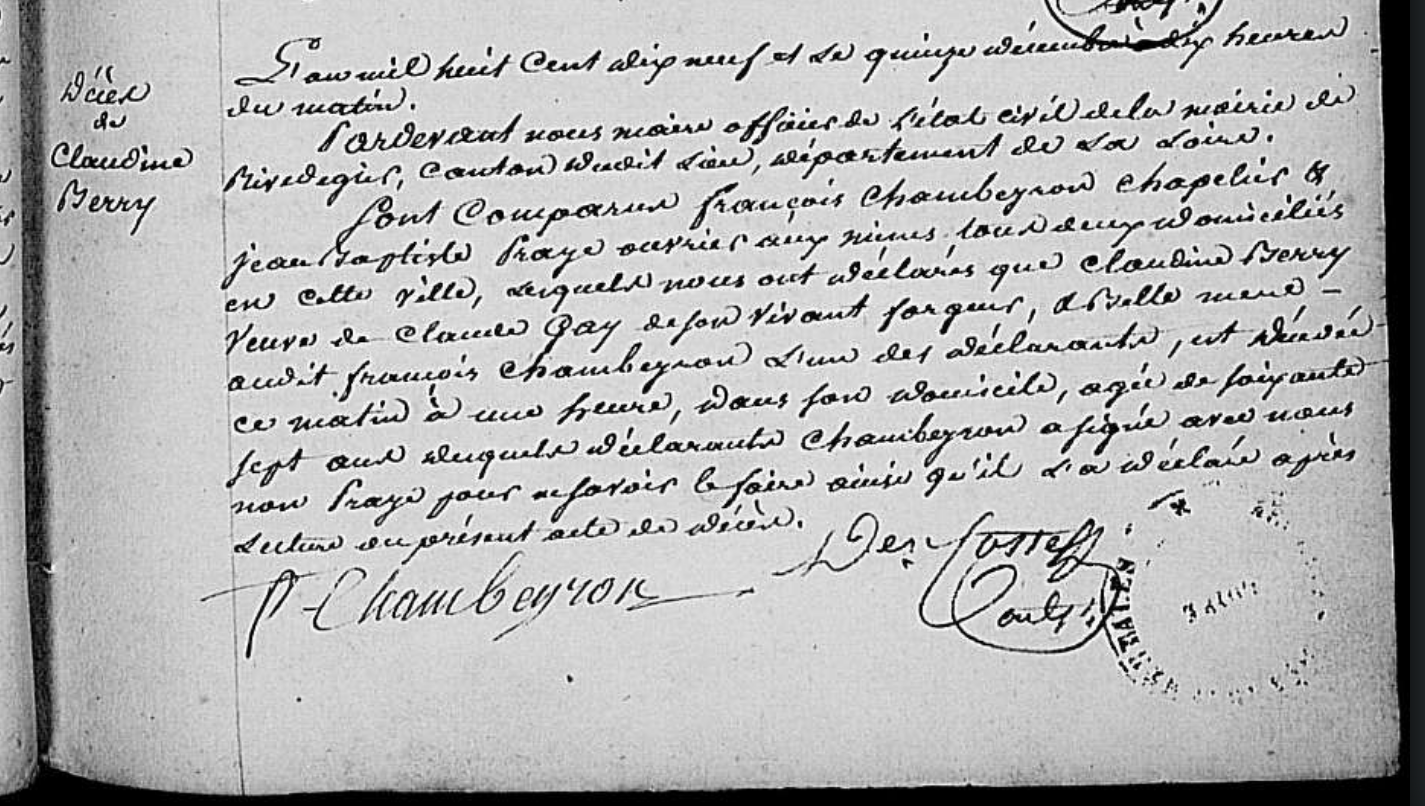 Décès
de
Claudine
Berry
L'an mil huit cent dix neuf et le quinze décembre à dix heures
du matin.
Pardevant nous maire officier de l'état civil de la mairie de
Rivedegier, canton dudit lieu, département de la Loire.
Sont comparus françois Chambeyron chapelier &
jean Baptiste Praye ouvrier aux mines tous deux domiciliés
en cette ville, lesquels nous ont déclarés que Claudine Berry
veuve de Claude Gay de son vivant forgeur, & Belle mere -
audit francois Chambeyron l'un des déclarants, est décédée
ce matin à une heure, dans son domicile, agée de soixante
sept ans desquels déclarants Chambeyron a signé avec nous
non Praye pour ne savoir le faire ainsi qu'il l'a déclaré après
lecture du présent acte de décès.
Chambeyron